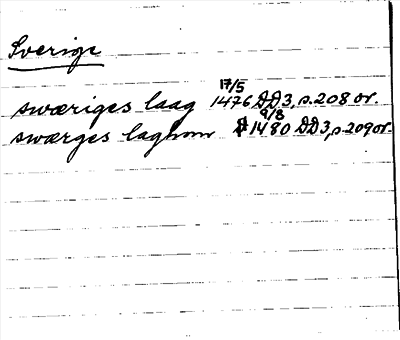 Sverige
swæriges laag 17/5 1476 DD3, s. 208 or.
swærges laghom 9/8 1480 DD3, s. 209 or.